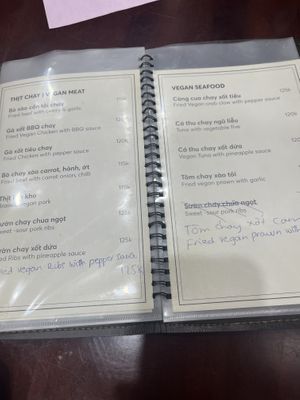 THỊT CHAY | VEGAN MEAT
Bò xào cần tỏi chay 115k
Fried beef with celery & garlic
Gà xốt BBQ chay 120k
Fried Vegan Chicken with BBQ sauce
Gà xốt tiêu chay 120k
Fried Chicken with pepper sauce
Bò chay xào carrot, hành, ớt 115k
Fried beef with carrot onion, chilli
Thịt kho
vegan pork
Sườn chay chua ngọt 125k
Sweet-sour pork ribs
Sườn chay xốt dứa 125k
Ribs with pineapple sauce
Fried vegan Ribs with pepper sauce
125k
VEGAN SEAFOOD
Càng cua chay xốt tiêu
Fried Vegan crab claw with pepper sauce
Cá thu chay ngũ liễu 120k
Tuna with vegetable five
Cá thu chay xốt dứa
Vegan Tuna with pineapple sauce
Tôm chay xào tỏi
Fried vegan prawn with garlic
Sườn chay chua ngọt
Sweet-sour pork ribs
Tôm chay xốt Cam
Fried vegan prawn with